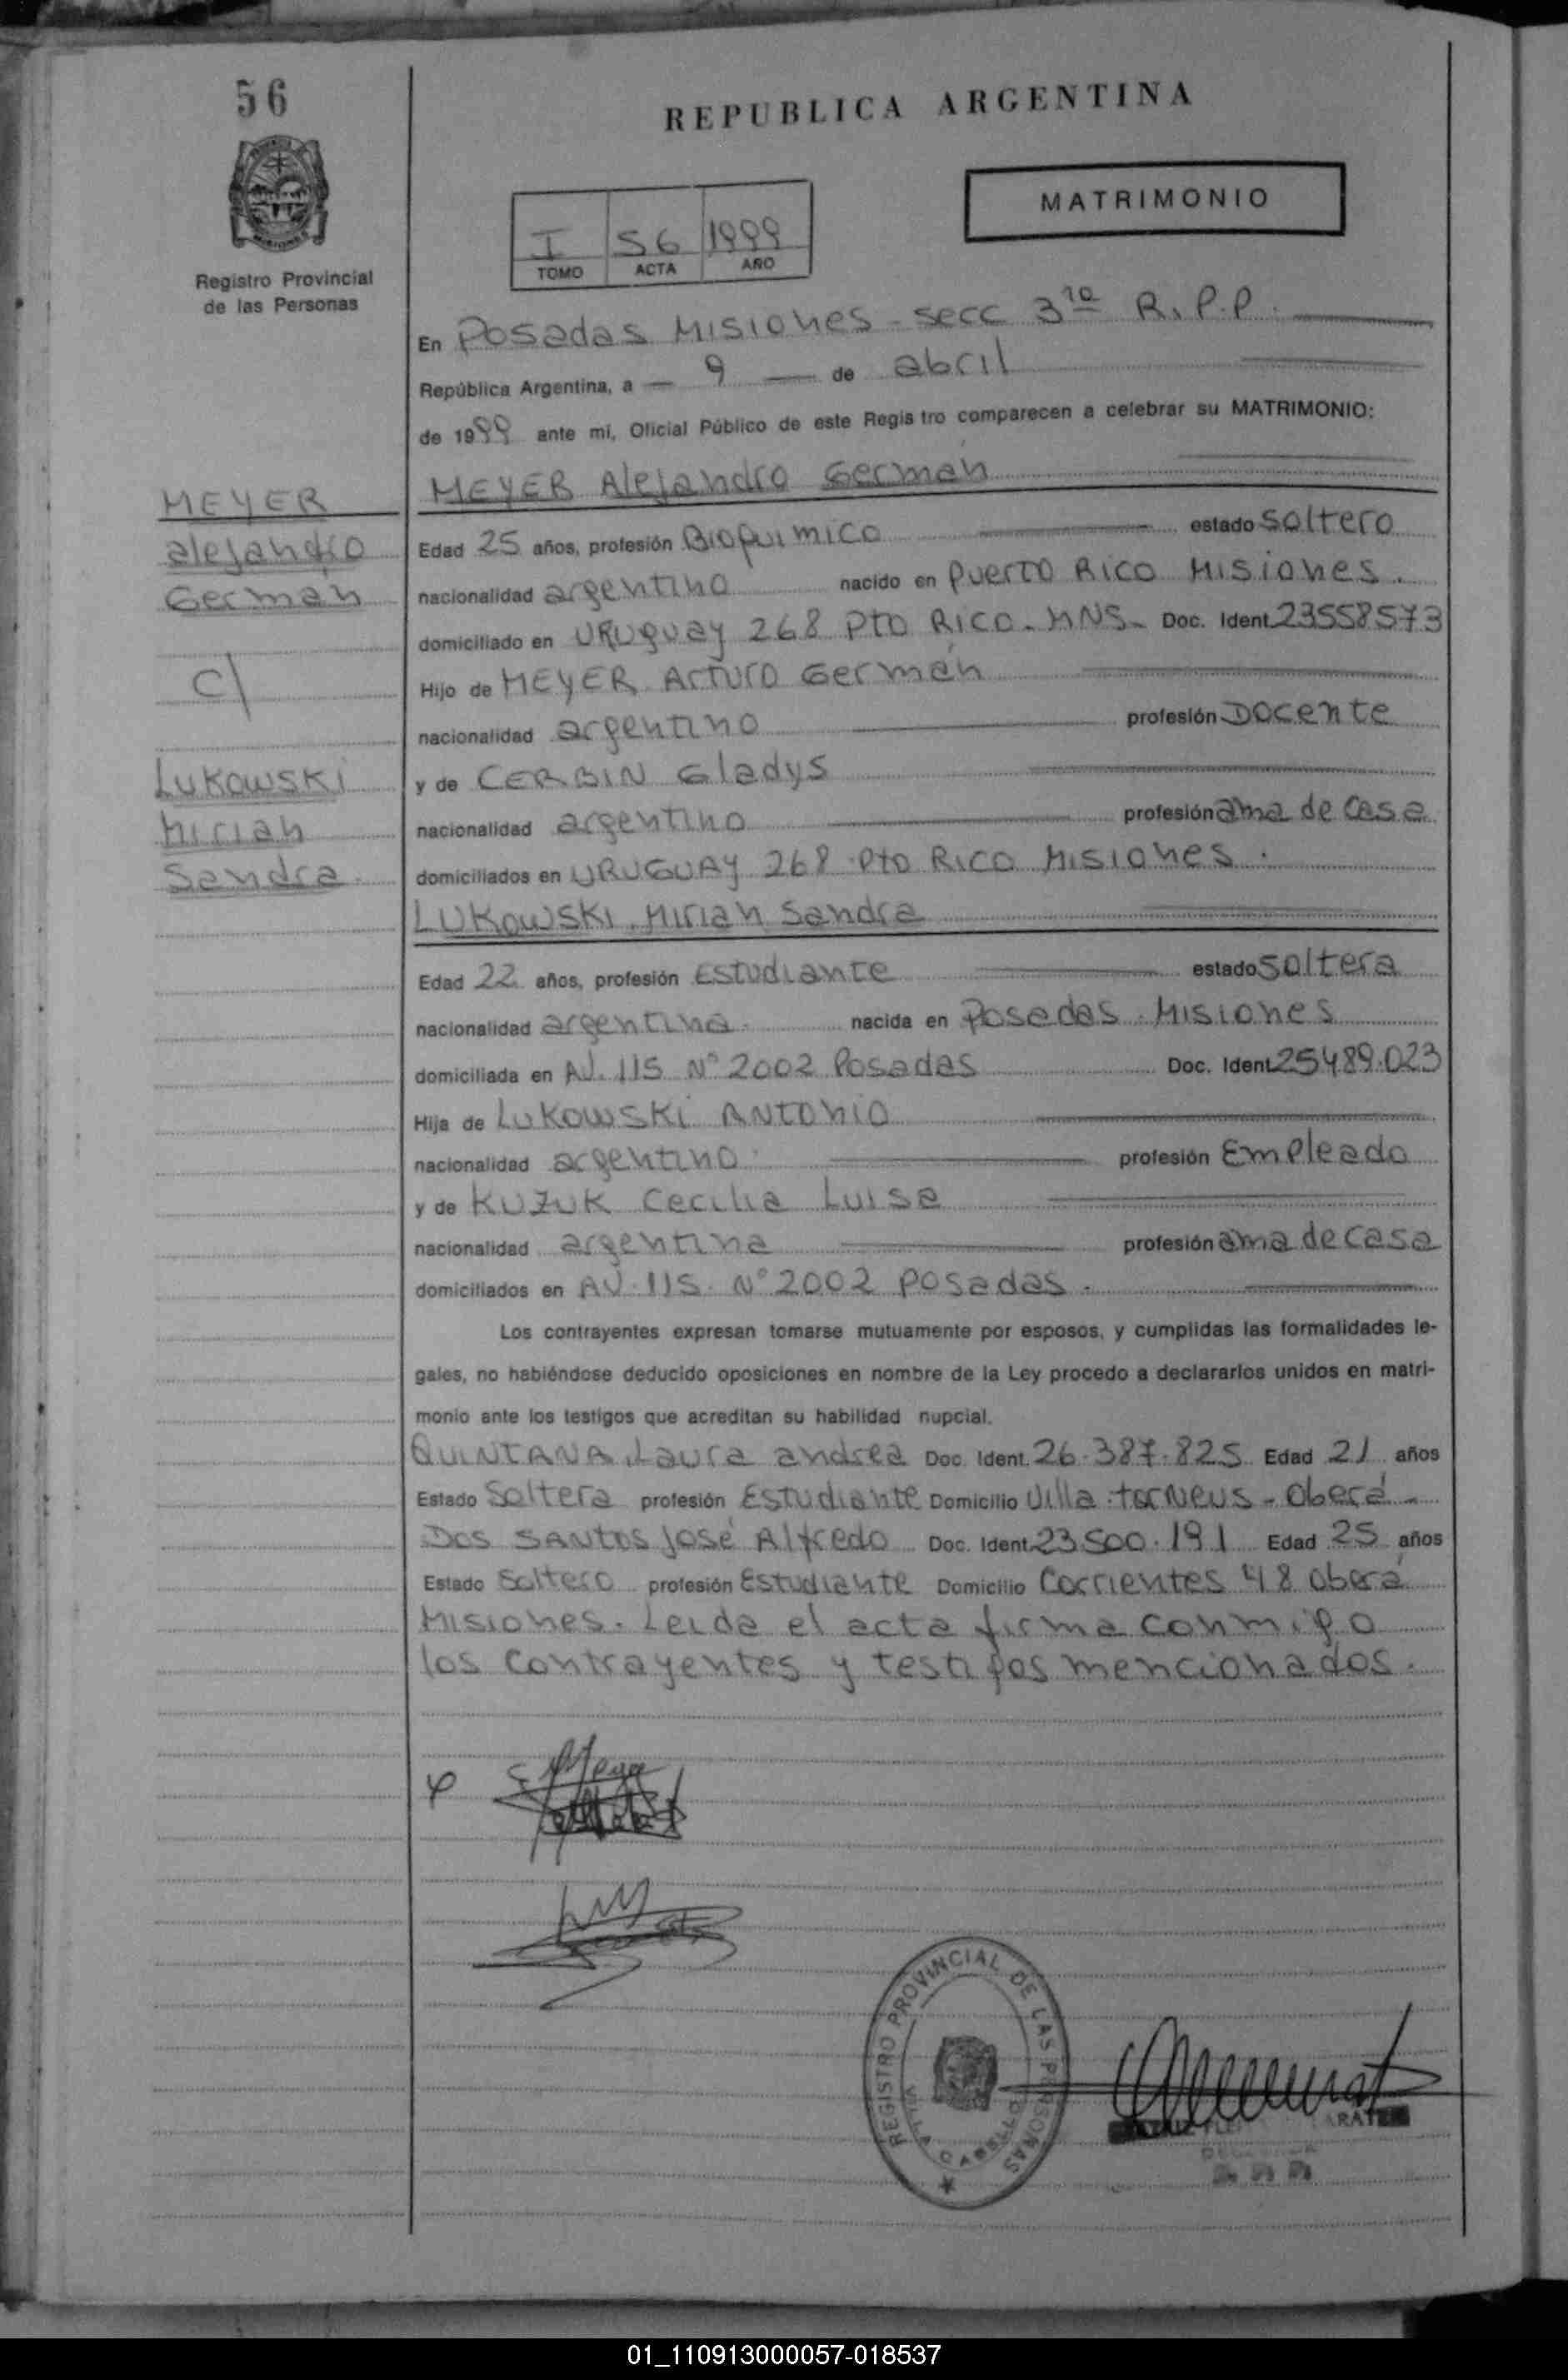 56
REPUBLICA ARGENTINA
MATRIMONIO
I 56 1999
TOMO ACTA AÑO
Registro Provincial
de las Personas
En Posadas Misiones - secc 3ra R.P.P.
República Argentina, a 9 de abril
de 1999 ante mi, Oficial Público de este Regis tro comparecen a celebrar su MATRIMONIO:
MEYER Alejandro Germán
MEYER
alejandro
Germán
c/
LUKOWSKI
Mirian
Sandra.
Edad 25 años, profesión Bioquimico estado soltero
nacionalidad argentino nacido en Puerto Rico Misiones.
domiciliado en URUguay 268 Pto Rico. MNS. Doc. Ident. 23558573
Hijo de MEYER Arturo Germán
nacionalidad argentino profesión Docente
y de CERBIN Gladys
nacionalidad argentino profesión ama de casa
domiciliados en URUGUAY 268 Pto Rico Misiones.
LUKOWSKI, Mirian Sandra
Edad 22 años, profesión Estudiante estado soltera
nacionalidad argentina. nacida en Posadas. Misiones
domiciliada en AV. 115 Nº 2002 Posadas Doc. Ident. 25489.023
Hija de LUKOWSKI ANTONIO
nacionalidad argentino profesión Empleado
y de KUZUK Cecilia Luisa
nacionalidad argentina profesión ama de casa
domiciliados en AV. 115. Nº 2002 Posadas.
Los contrayentes expresan tomarse mutuamente por esposos, y cumplidas las formalidades le-
gales, no habiéndose deducido oposiciones en nombre de la Ley procedo a declararlos unidos en matri-
monio ante los testigos que acreditan su habilidad nupcial.
QUINTANA, Laura andrea Doc. Ident. 26.387.825 Edad 21 años
Estado Soltera profesión Estudiante Domicilio Villa torneus - Oberá -
Dos SANTOS José Alfredo Doc. Ident. 23.500.191 Edad 25 años
Estado Soltero profesión Estudiante Domicilio Corrientes 48 Oberá
Misiones. Leida el acta firma conmigo
los contrayentes y testigos mencionados.
REGISTRO PROVINCIAL DE LAS PERSONAS
VILLA CABELLO
01_110913000057-018537